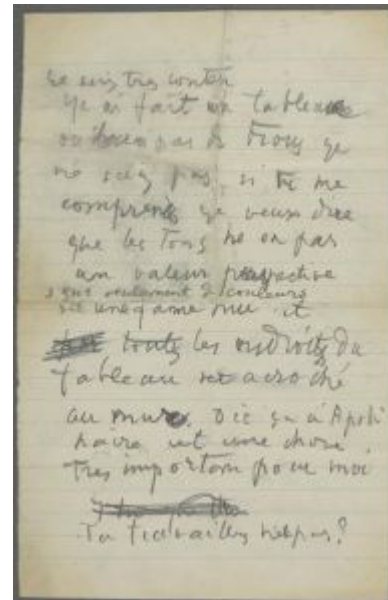 Je suis tres conten
ye ai fait un tableau
ou pas de trous ye
ne sey pas si tu me
comprends ye veux dire
que les tons ne on pas
un valeur perspective
seulement 2 couleurs
une game nue et
touts les endroits du
tableau est acroché
au mure Dic ça à Apoli
naire cet une chose
tres importan pour moi
Tu travailles nespas?